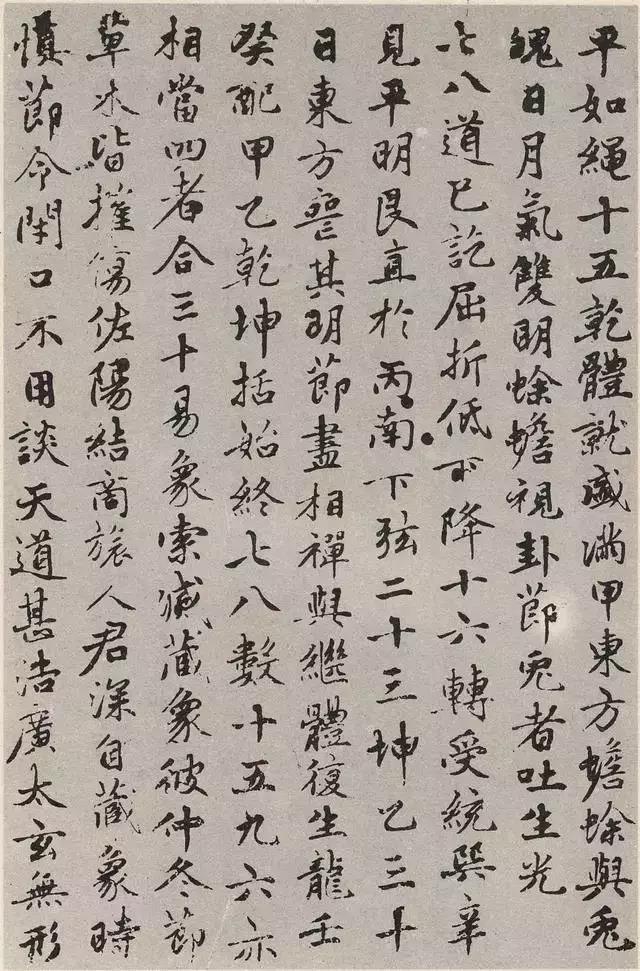 平如繩十五乾體就盛滿甲東方蟾蜍與兔
魄日月氣雙明蜍蟾視卦節兔者吐生光
七八道已訖屈折低下降十六轉受統巽辛
見平明艮直於丙南下弦二十三坤乙三十
日東方喪其明節盡相禪與繼體復生龍壬
癸配甲乙乾坤括始終七八數十五九六亦
相當四者合三十易象索滅藏象彼仲冬節
草木皆摧傷佐陽結商旅人君深自藏象時
慎節令閉口不用談天道甚浩廣太玄無形